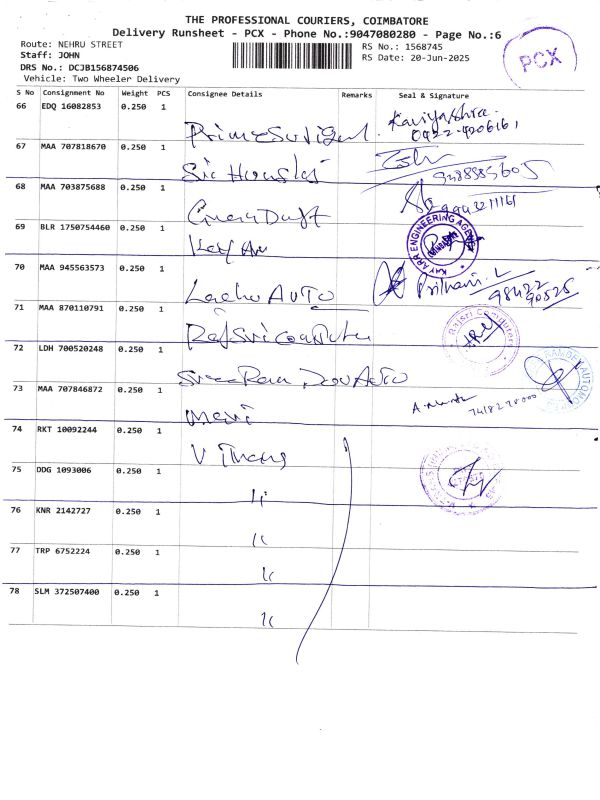 THE PROFESSIONAL COURIERS, COIMBATORE
Delivery Runsheet - PCX - Phone No.:9047080280 - Page No.:6
Route: NEHRU STREET
RS No.: 1568745
PCX
Staff: JOHN
RS Date: 20-Jun-2025
DRS No.: DCJB156874506
Vehicle: Two Wheeler Delivery
S No Consignment No Weight PCS Consignee Details Remarks Seal & Signature
66 EDQ 16082853 0.250 1
0422-4206161
67 MAA 707818670 0.250 1
9388885605
68 MAA 703875688 0.250 1
9943211161
69 BLR 1750754460 0.250 1
KAY AARR ENGINEERING AGENCY
70 MAA 945563573 0.250 1 Auto
98422
90525
71 MAA 870110791 0.250 1
Rajsri Computers
72 LDH 700520248 0.250 1 Sree Ram Dev Auto
73 MAA 707846872 0.250 1 Mani
7418278000
74 RKT 10092244 0.250 1 V Thang
75 DDG 1093006 0.250 1 "
76 KNR 2142727 0.250 1 "
77 TRP 6752224 0.250 1 "
78 SLM 372507400 0.250 1 "